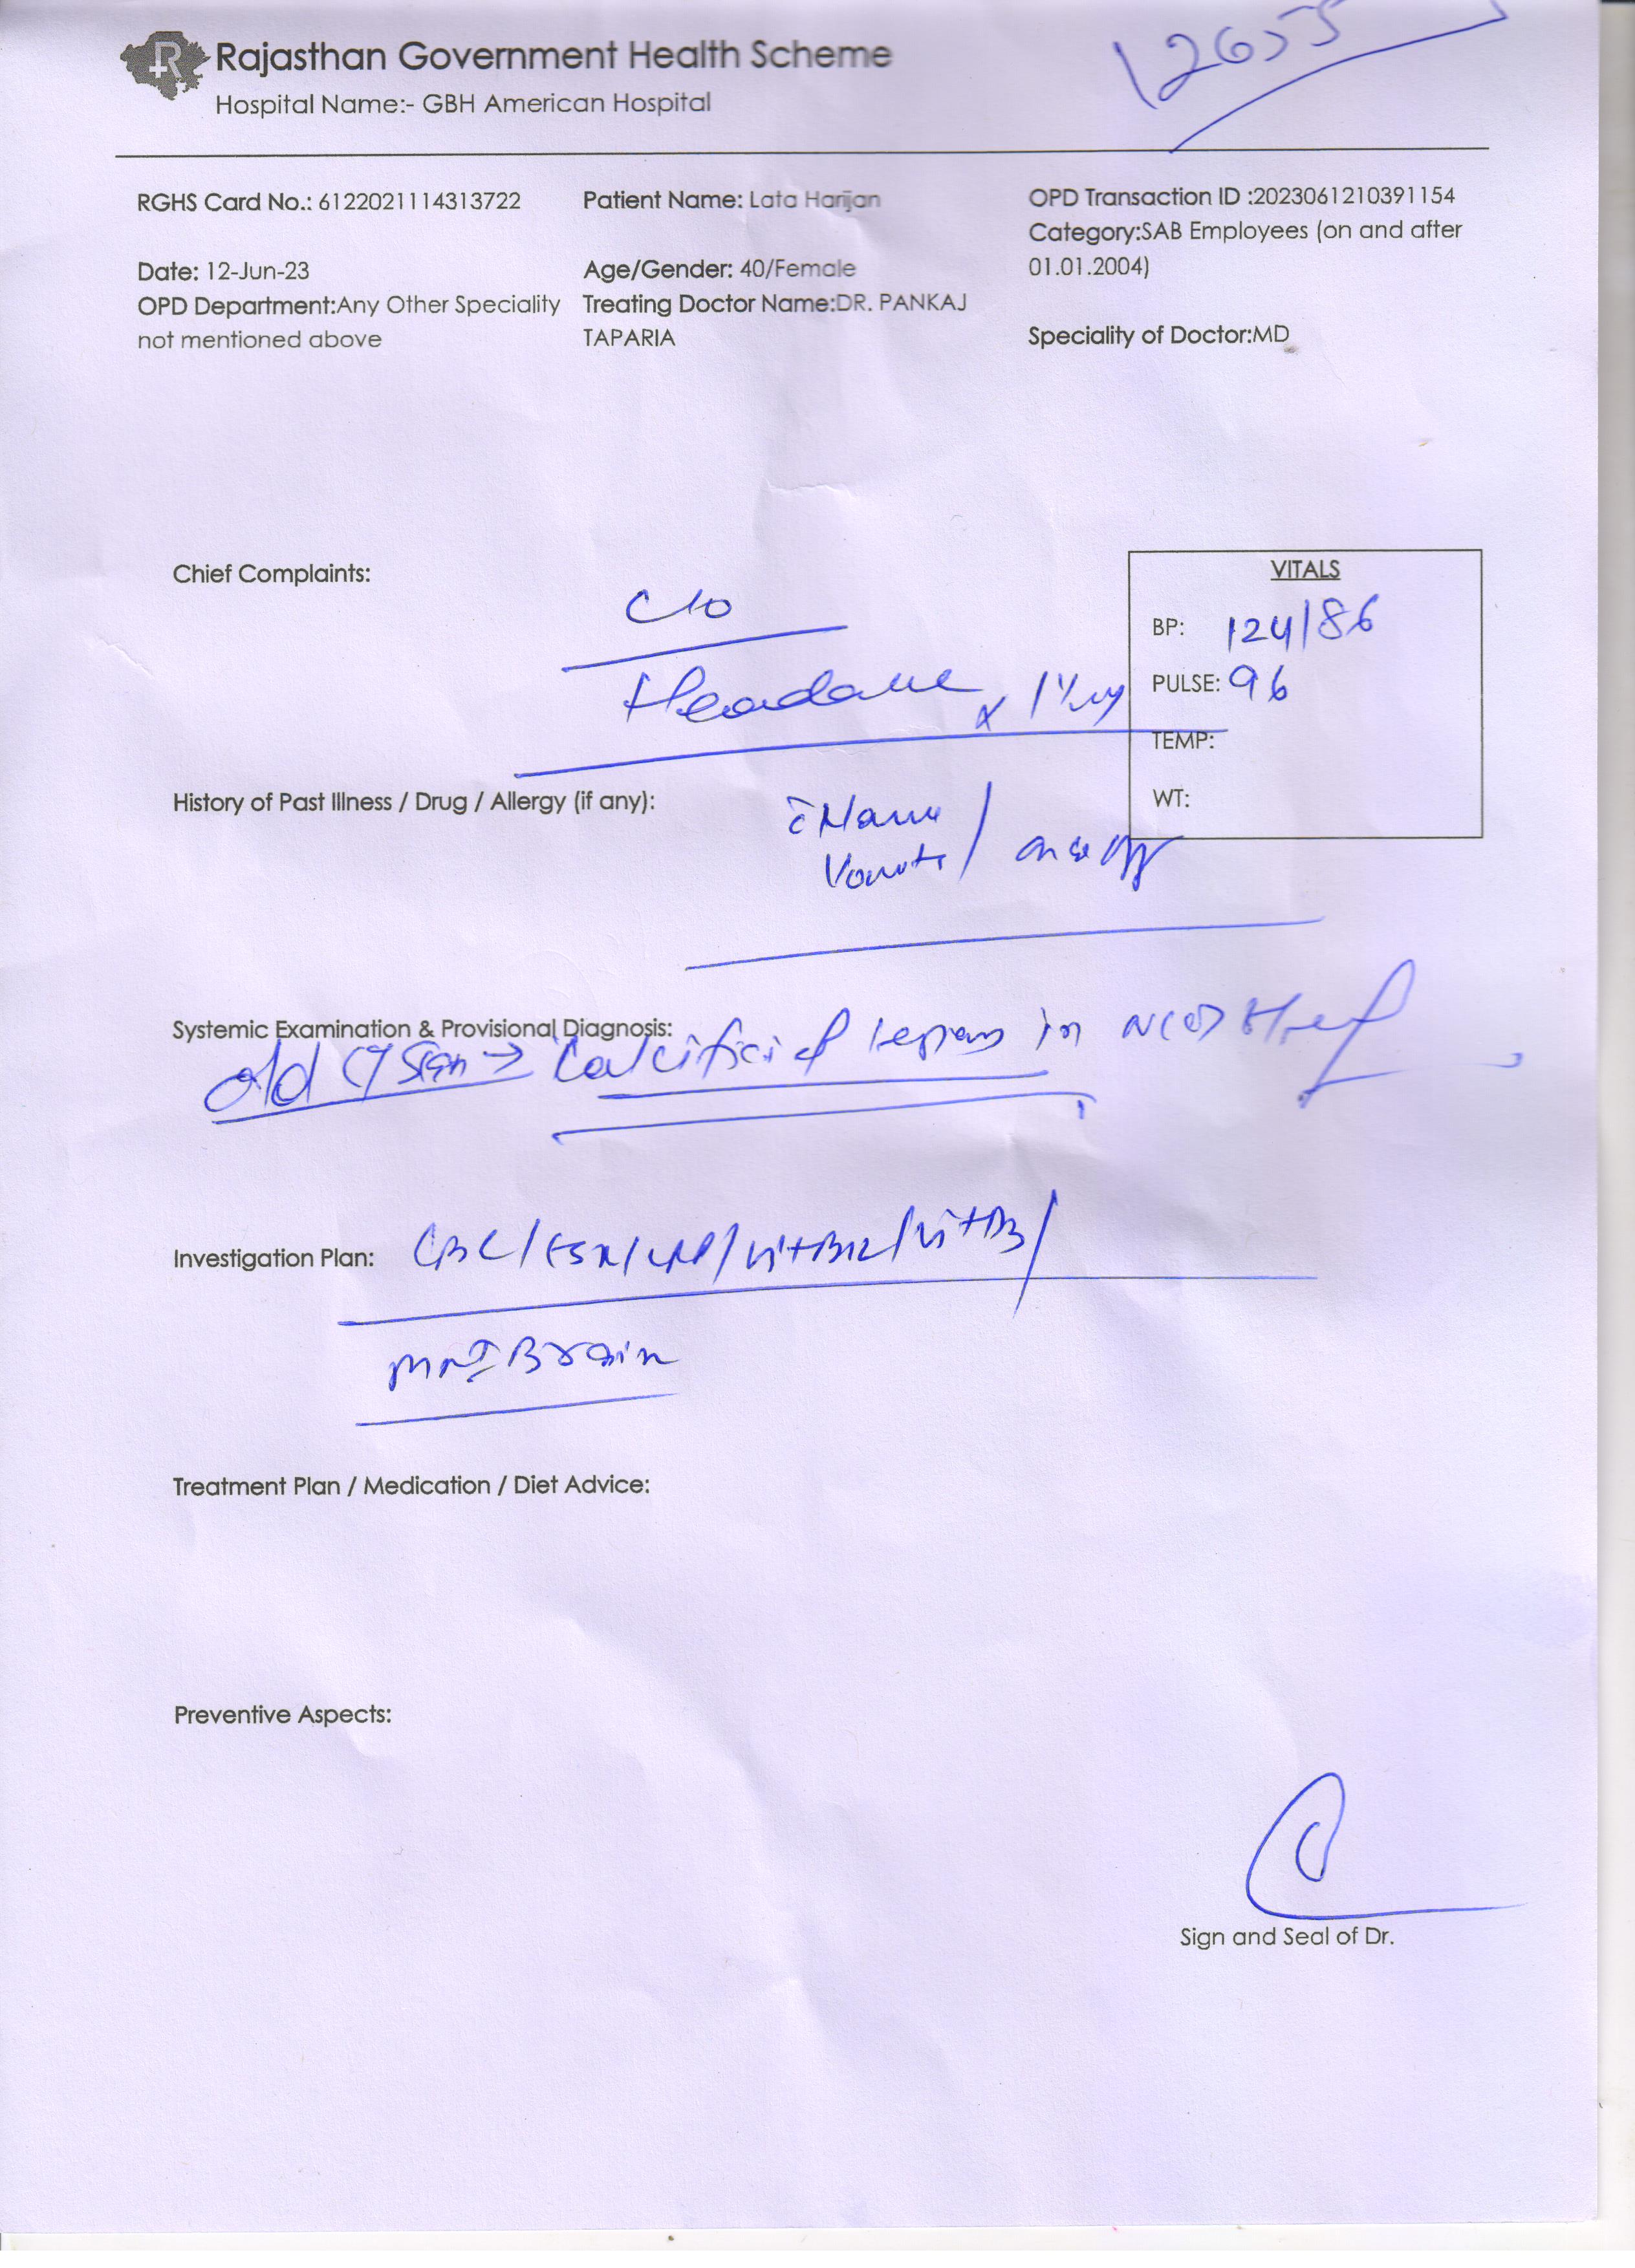 Rajasthan Government Health Scheme
Hospital Name:- GBH American Hospital
RGHS Card No.: 6122021114313722
Patient Name: Lata Harijan
OPD Transaction ID :2023061210391154
Category:SAB Employees (on and after
01.01.2004)
Date: 12-Jun-23
Age/Gender: 40/Female
OPD Department:Any Other Speciality
not mentioned above
Treating Doctor Name:DR. PANKAJ
TAPARIA
Speciality of Doctor:MD
Chief Complaints:
C/o
Headache x 1
VITALS
BP: 124/86
PULSE: 96
TEMP:
WT:
History of Past Illness / Drug / Allergy (if any):
Systemic Examination & Provisional Diagnosis:
old CT Scan → Calcified lesions in
Investigation Plan: CBC/ESR/CRP/VitB12/VitD3/
MRI Brain
Treatment Plan / Medication / Diet Advice:
Preventive Aspects:
Sign and Seal of Dr.